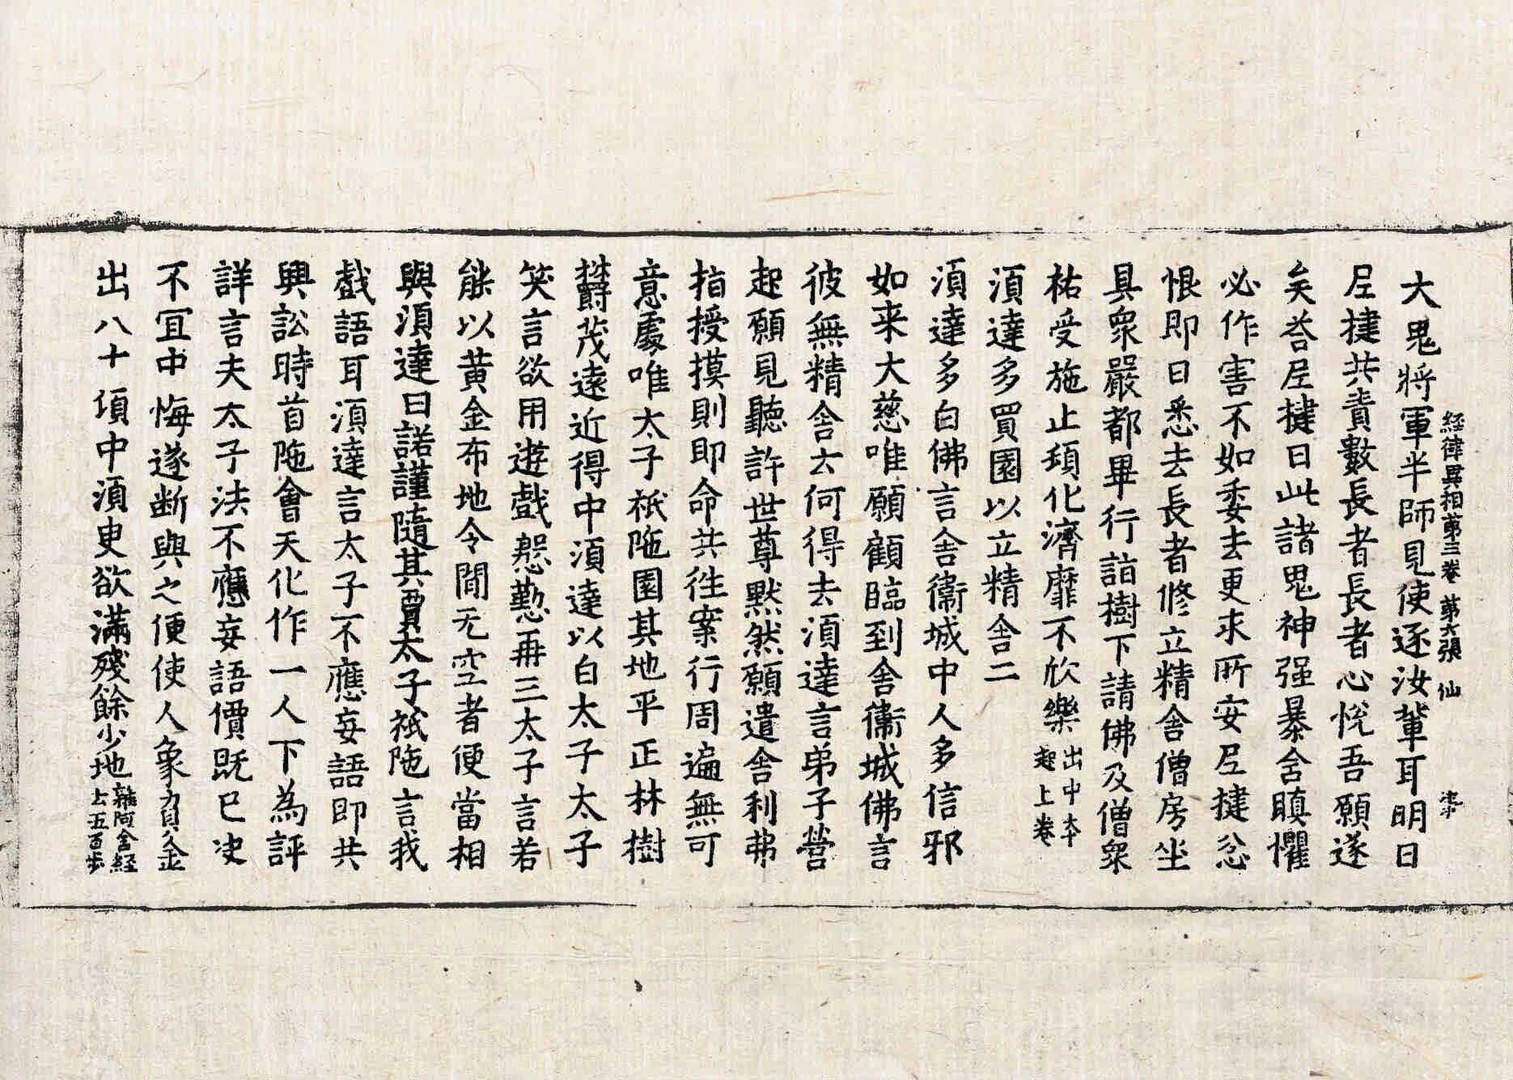 經律異相第三卷 第六張 仙
大鬼將軍半師見使逐汝輩耳明日
尼揵共責數長者長者心恱吾願遂
矣荅尼揵曰此諸鬼神强暴含瞋懼
必作害不如委去更求所安尼揵忿
恨即日悉去長者修立精舍僧房坐
具衆嚴都畢行詣樹下請佛及僧衆
祐受施止頊化濟靡不欣樂出中夲起上卷
湏達多買園以立精舍二
湏達多白佛言舍衞城中人多信邪
如来大慈唯願顧臨到舍衞城佛言
彼無精舍云何得去湏達言弟子營
起願見聽許世尊黙然願遣舍利弗
指授摸則即命共徃案行周遍無可
意處唯太子祇陁園其地平正林樹
欝茂遠近得中湏達以白太子太子
笑言欲用遊戯慇懃再三太子言若
能以黄金布地令間无空者便當相
與湏達曰諾謹隨其賈太子祇陁言我
戯語耳湏達言太子不應妄語即共
興訟時首陁會天化作一人下為評
詳言夫太子法不應妄語價既已决
不冝中悔遂断與之便使人象負金
出八十頃中湏臾欲滿殘餘少地雜阿含經云五百步